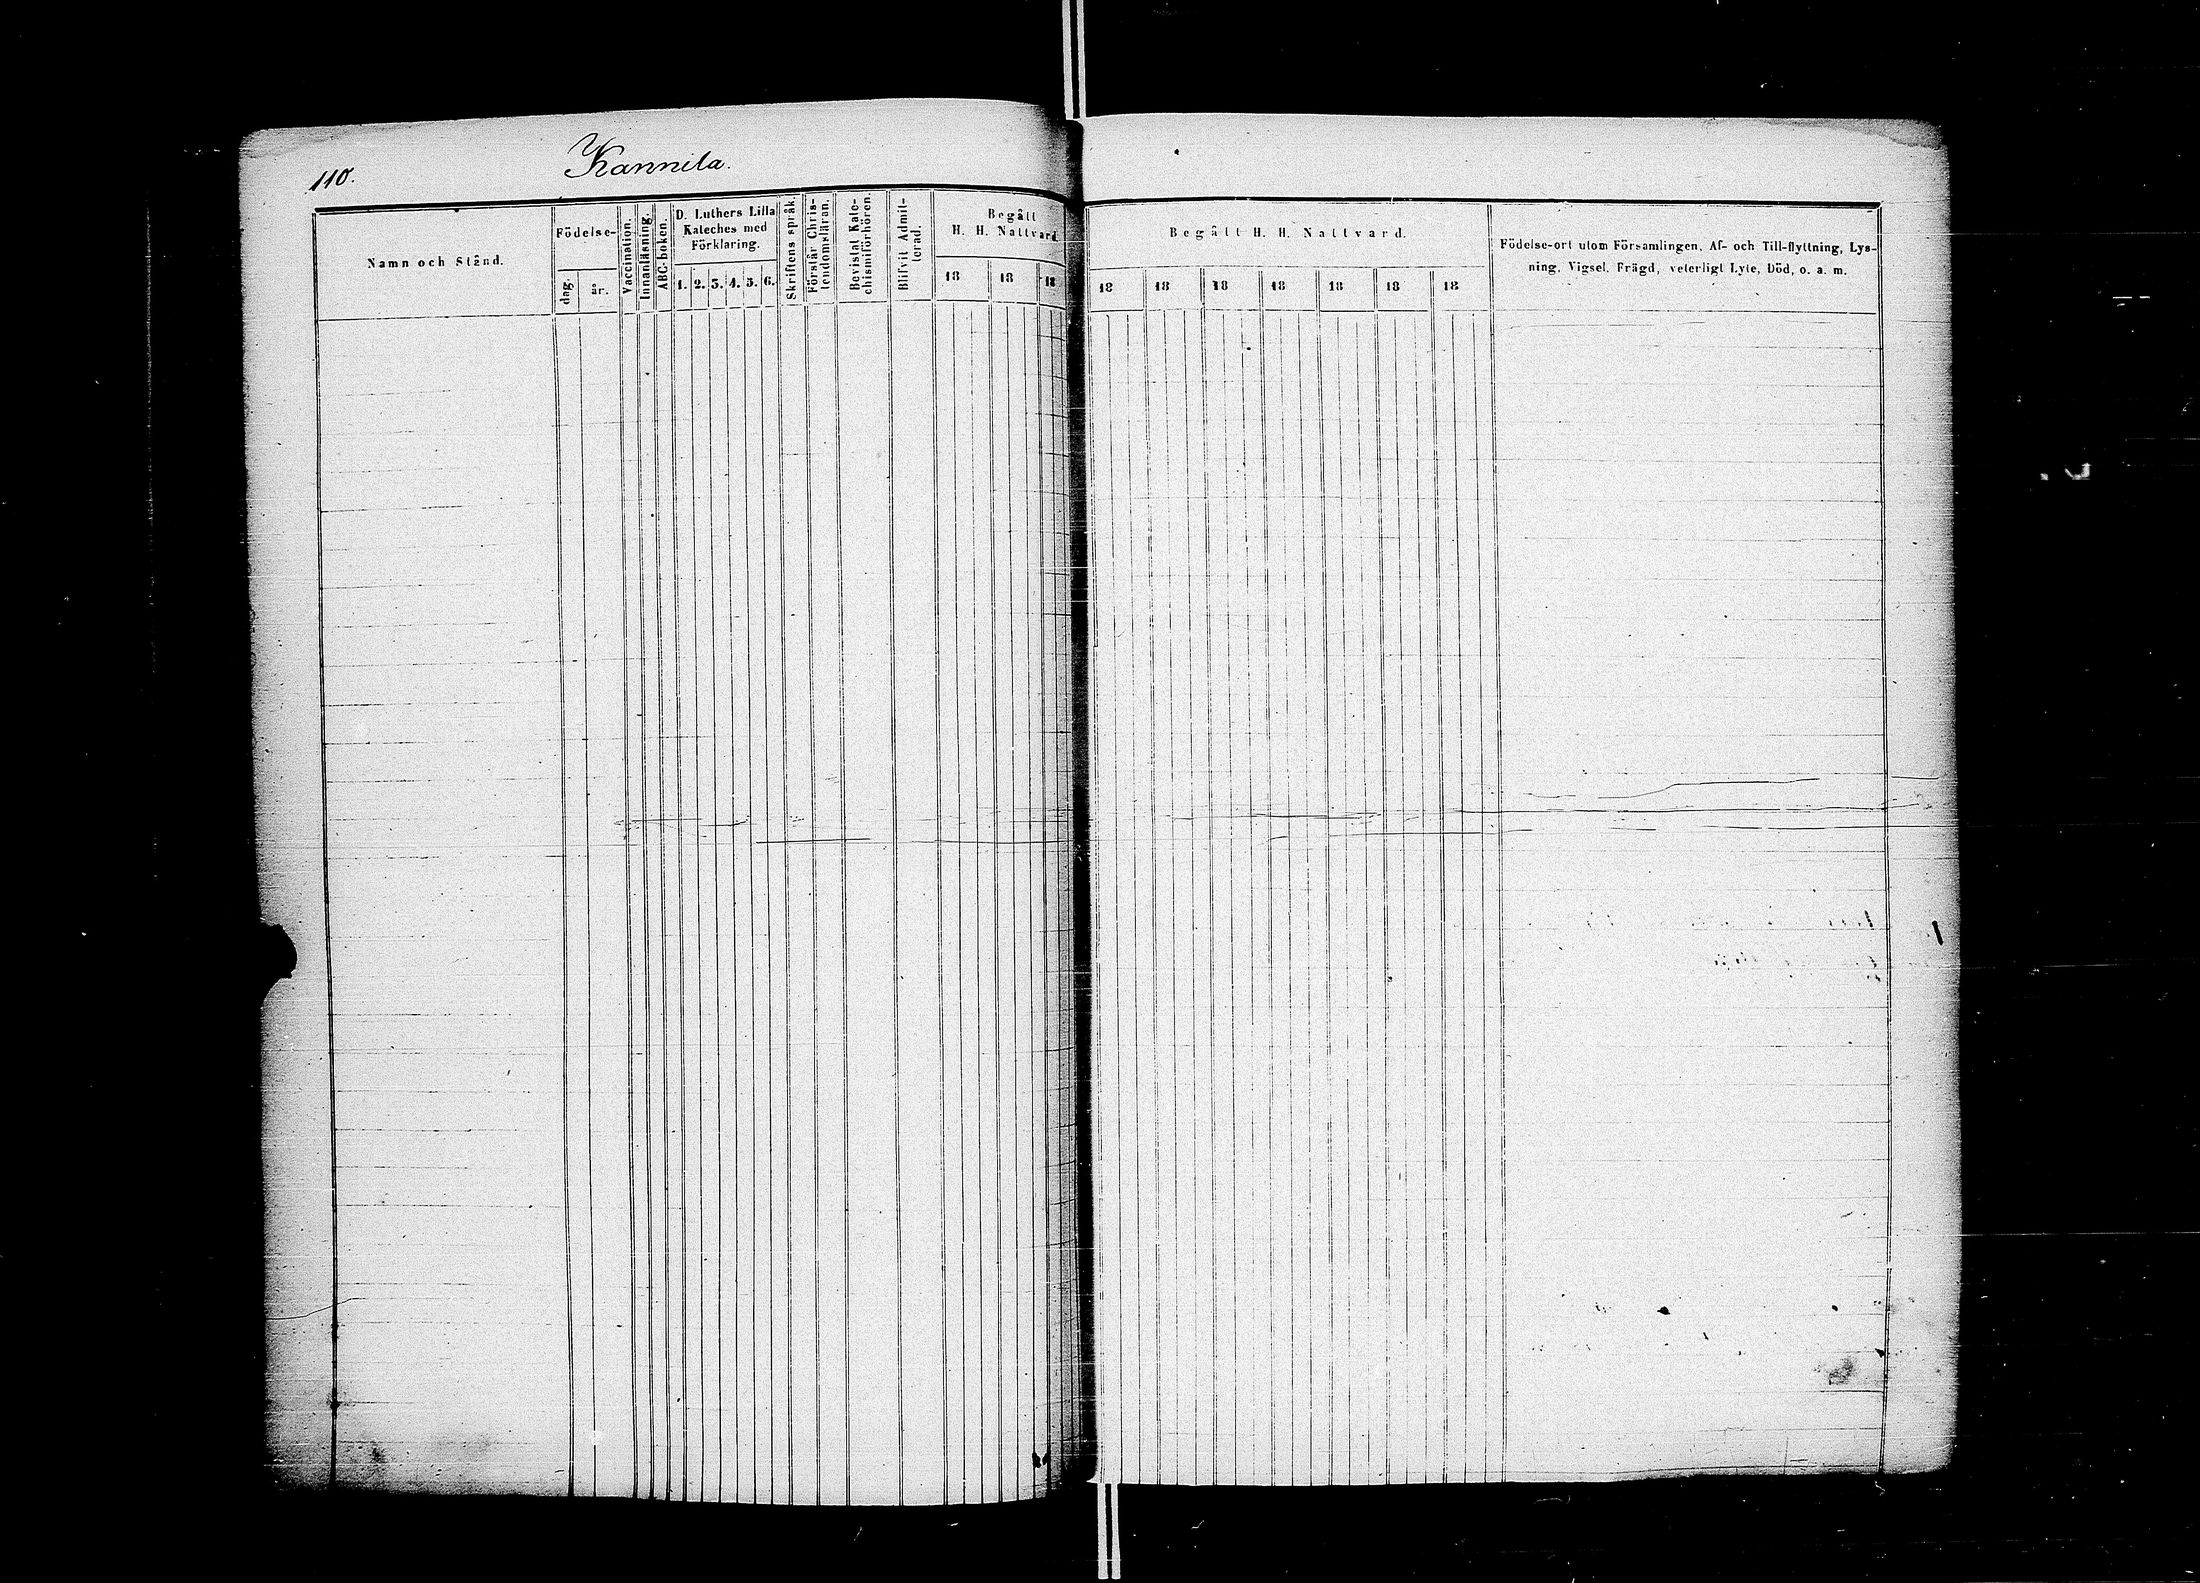 110.
Kannila.
Namn och Stånd.
Födelse-
dag.
år.
Vaccination.
Innanläsning.
ABC-boken.
D. Luthers Lilla
Kateches med
Förklaring.
1. 2. 3. 4. 5. 6.
Skriftens språk.
Förstår Chris-
tendomsläran.
Bevistat Kate-
chismiförhören.
Blifvit Admit-
terad.
Begått
H. H. Nattvard.
18 18 18
Begått H. H. Nattvard.
18 18 18 18 18 18 18
Födelse-ort utom Församlingen, Af- och Till-flyttning, Lys-
ning, Vigsel, Frägd, veterligt Lyte, Död, o. a. m.